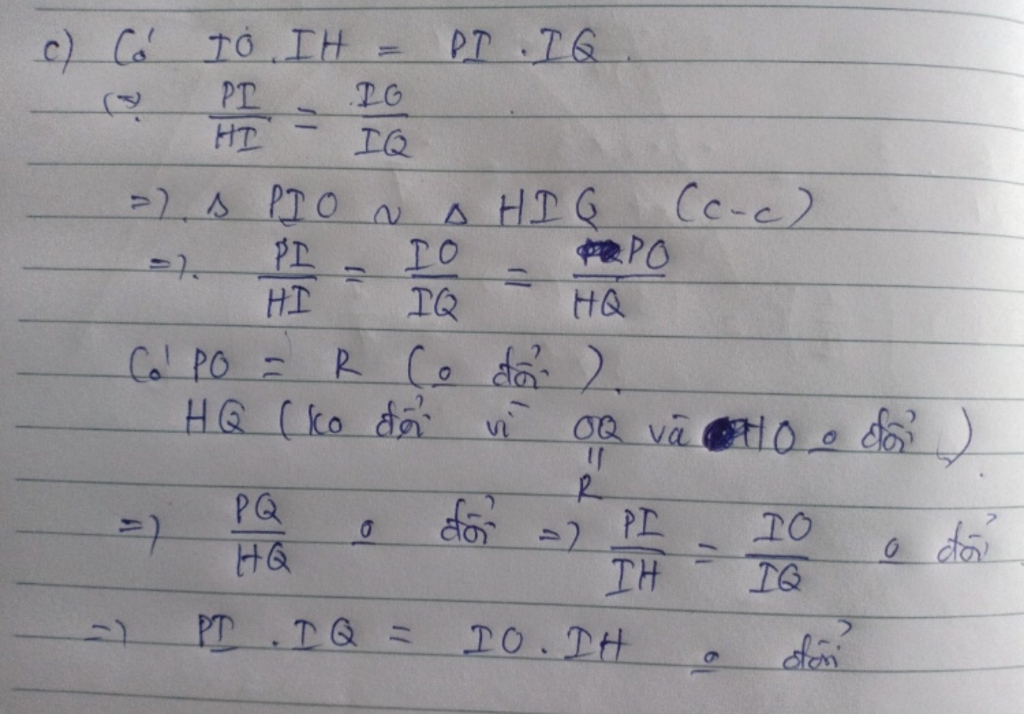 c) Có IO . IH = PI . IQ.
(=). PI/HI = IO/IQ
=). Δ PIO ~ Δ HIQ (c-c)
=). PI/HI = IO/IQ = PO/HQ
Có PO = R (o đổi).
HQ (ko đổi vì OQ và HO o đổi).
=
R
=) PQ/HQ o đổi =) PI/IH = IO/IQ o đổi
=) PI . IQ = IO . IH o đổi